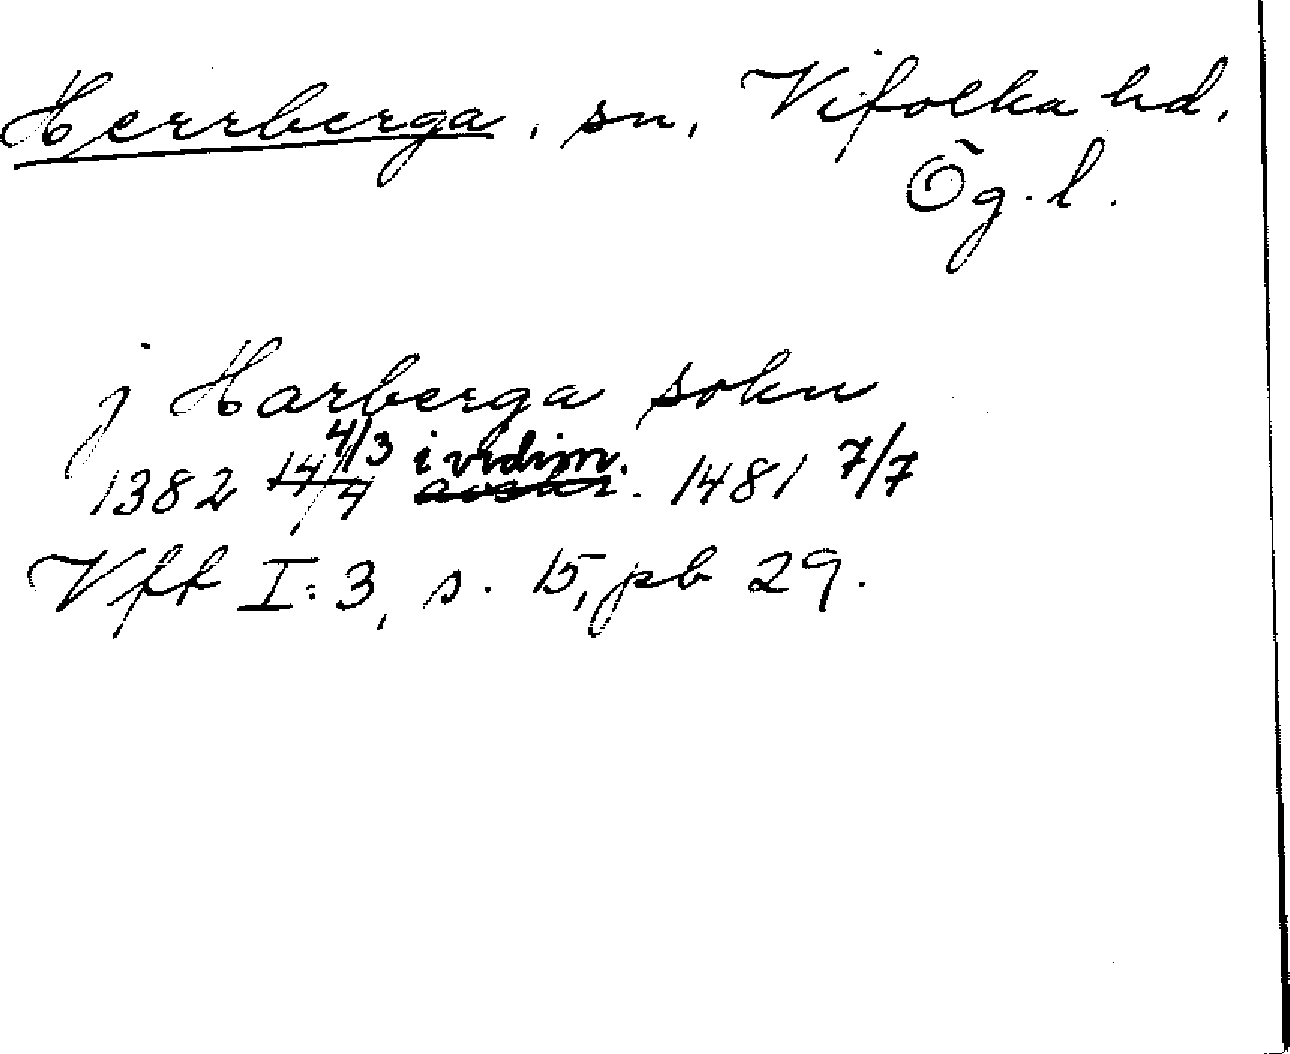 Herrberga, sn, Vifolka hd,
Ög. l.
j Harberga sokn
1382 4/3 i vidim. 1481 7/7
Vff I:3, s. 15, pb 29.